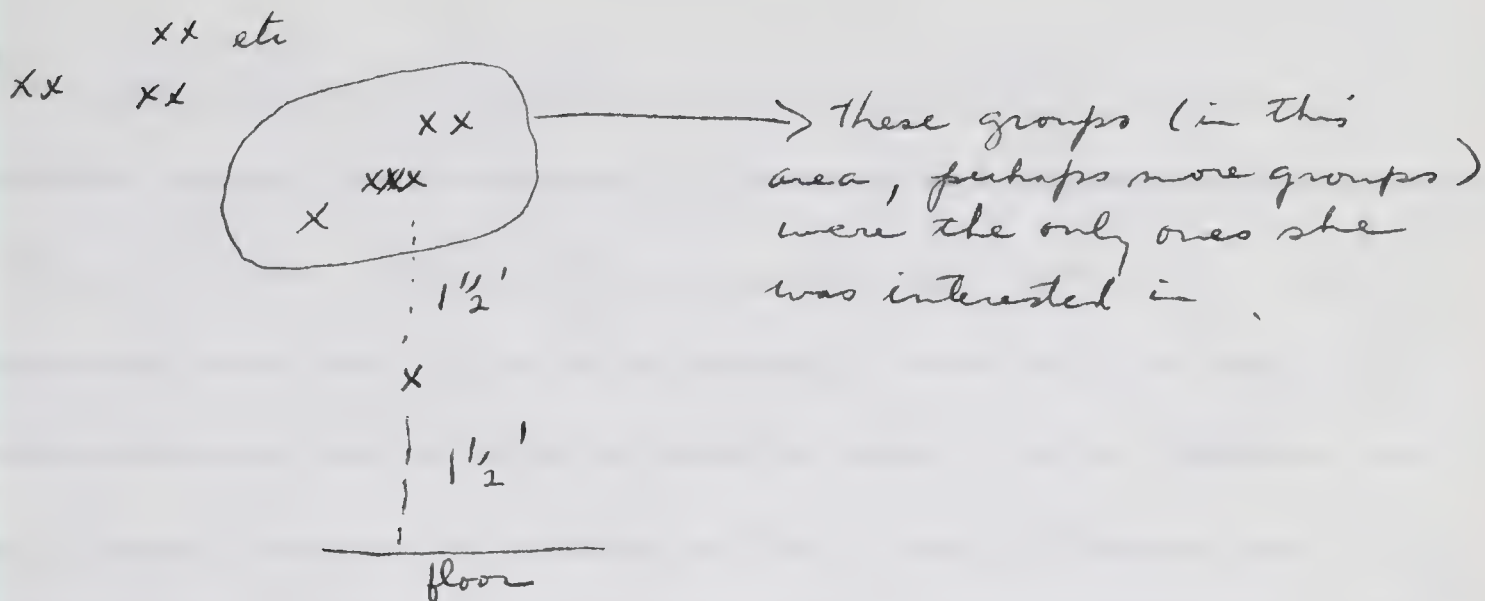 xx etc
xx xx
xx
xxx
x
→ These groups (in this
area, perhaps more groups)
were the only ones she
was interested in.
1 1/2'
x
1 1/2'
floor